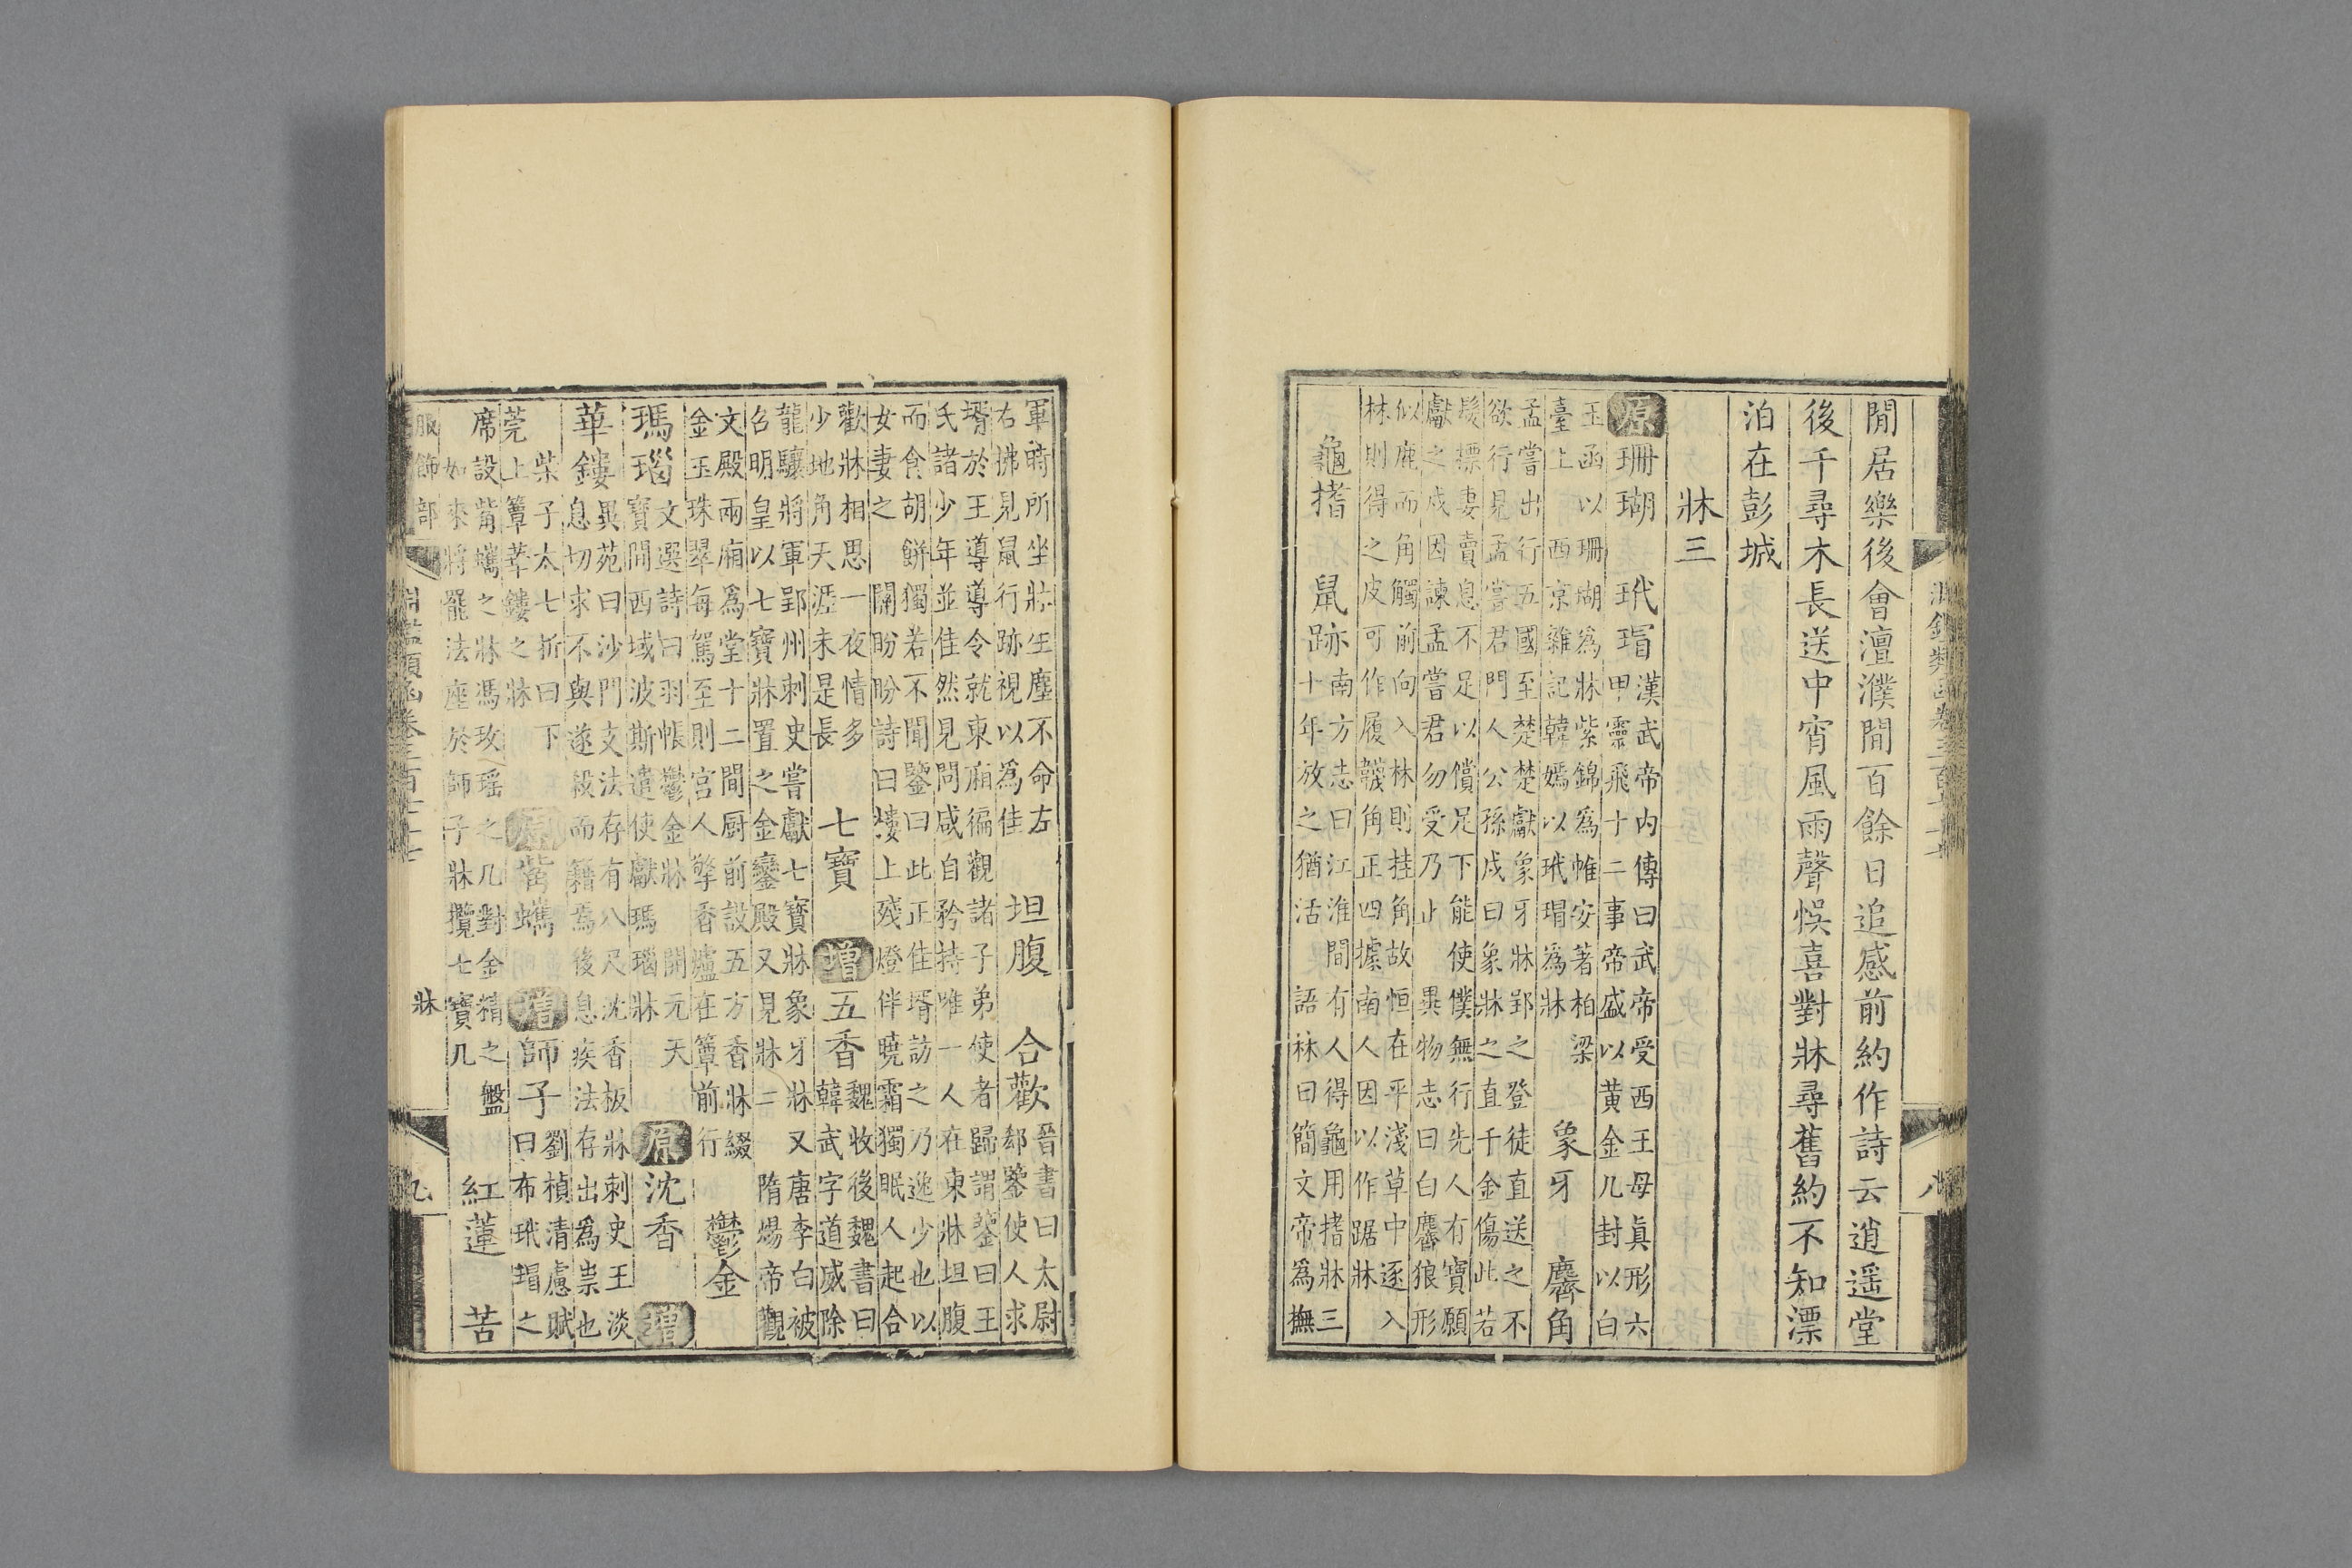 閒居樂後會澶濮間百餘日追感前約作詩云逍遥堂
後千尋木長送中宵風雨聲悮喜對牀尋舊約不知漂
泊在彭城
牀三
原珊瑚
玉函以珊瑚爲牀紫錦爲帷安著柏梁
臺上 西京雜記韓嫣以玳瑁爲牀
玳瑁
漢武帝内傳曰武帝受西王母真形六
甲靈飛十二事帝盛以黄金几封以白
象牙
孟嘗出行五國至楚楚獻象牙牀郢之登徒直送之不
欲行見孟嘗君門人公孫戍曰象牀之直千金傷此若
髮摽妻賣息不足以償足下能使僕無行先人有寶願
獻之戍因諫孟嘗君勿受乃止
麝角
異物志曰白麖狼形
似鹿而角觸前向入林則挂角故恒在平淺草中逐入
林則得之皮可作履韈角正四據南人因以作踞牀
龜搘
鼠跡
南方志曰江淮間有人得龜用搘牀三
十年放之猶活
語林曰簡文帝爲撫
服飾部
淵鑑類函卷三百七十七
牀
八
軍時所坐牀生塵不命左
右拂見鼠行跡視以為佳
坦腹
合歡
晉書曰太尉
郄鑒使人求
壻於王導導令就東廂徧觀諸子弟使者歸謂鑒曰王
氏諸少年並佳然見問咸自矜持唯一人在東牀坦腹
而食胡餅獨若不聞鑒曰此正佳壻訪之乃逸少也以
女妻之
關盼盼詩曰樓上殘燈伴曉霜獨眠人起合
歡牀相思一夜情多
少地角天涯未是長
七寶
增五香
魏收後魏書曰
韓武字道咸除
龍驤將軍郢州刺史嘗獻七寶牀象牙牀 又唐李白被
召明皇以七寶牀置之金鑾殿又見牀二
隋煬帝觀
文殿兩廂爲堂十二間厨前設五方香牀綴
金玉珠翠每駕至則宫人擎香爐在簟前行
鬱金
瑪瑙
文選詩曰羽帳鬱金牀
開元天
寶間西域波斯遣使獻瑪瑙牀
原沈香
增華鏤
異苑曰沙門支法存有八尺沈香板牀刺史王淡
息切求不與遂殺而籍焉後息疾法存出爲祟也
柴子太七折曰下
莞上簟華鏤之牀
原觜蠵
增師子
劉楨清慮賦
曰布玳瑁之
席設觜蠵之牀馮玫瑶之几對金精之盤
如來將罷法座於師子牀攬七寶几
紅蓮
苦
服飾部
淵鑑類函卷三百七十七
牀
九